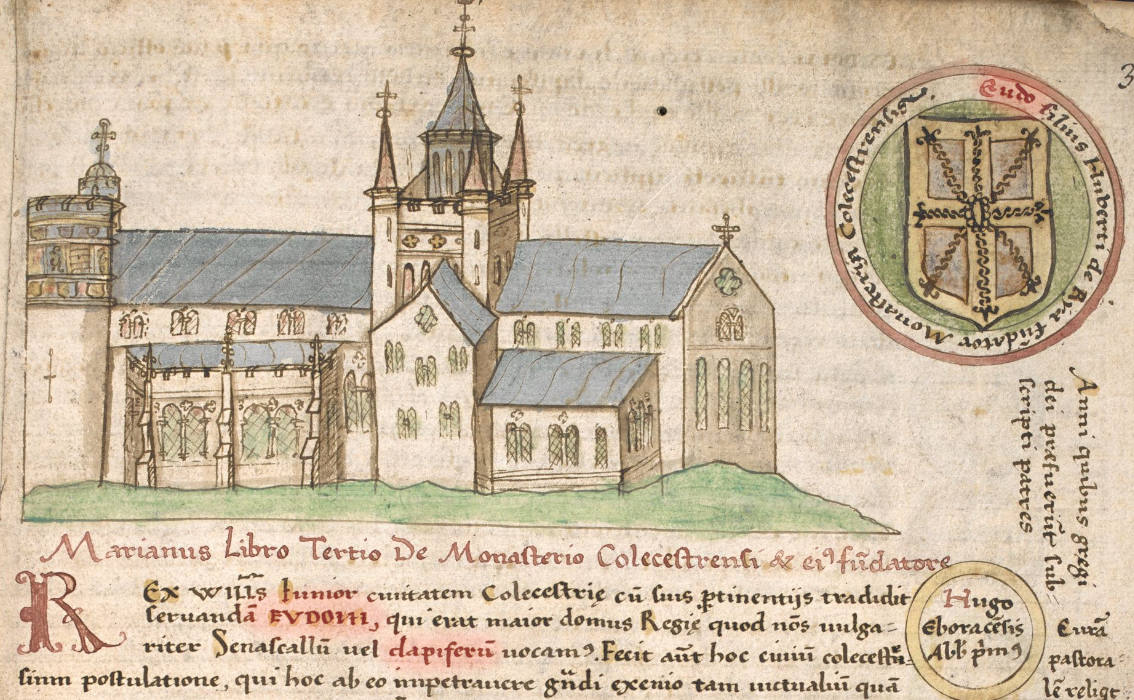 3
Eudo filius Huberti de Rya fūdator Monasterii Colecestrensis.
Anni quibus gregi
dei præfuerūt sub-
scripti patres
Marianus Libro Tertio De Monasterio Colecestrensi & ei⁹ fūdatore
REX Willms Iunior ciuitatem Colecestrię cū suis ꝑtinentijs tradidit
seruandā EVDONI, qui erat maior domus Regię quod nōs uulga-
riter Senascallū uel dapiferū uocam⁹. Fecit aūt hoc ciuiū colecestrē-
sium postulatione, qui hoc ab eo impetrauere grādi exenio tam uictualiū quā
Hugo
Eboracēsis
Abb p̄m⁹
Curā
pastora-
lē religt